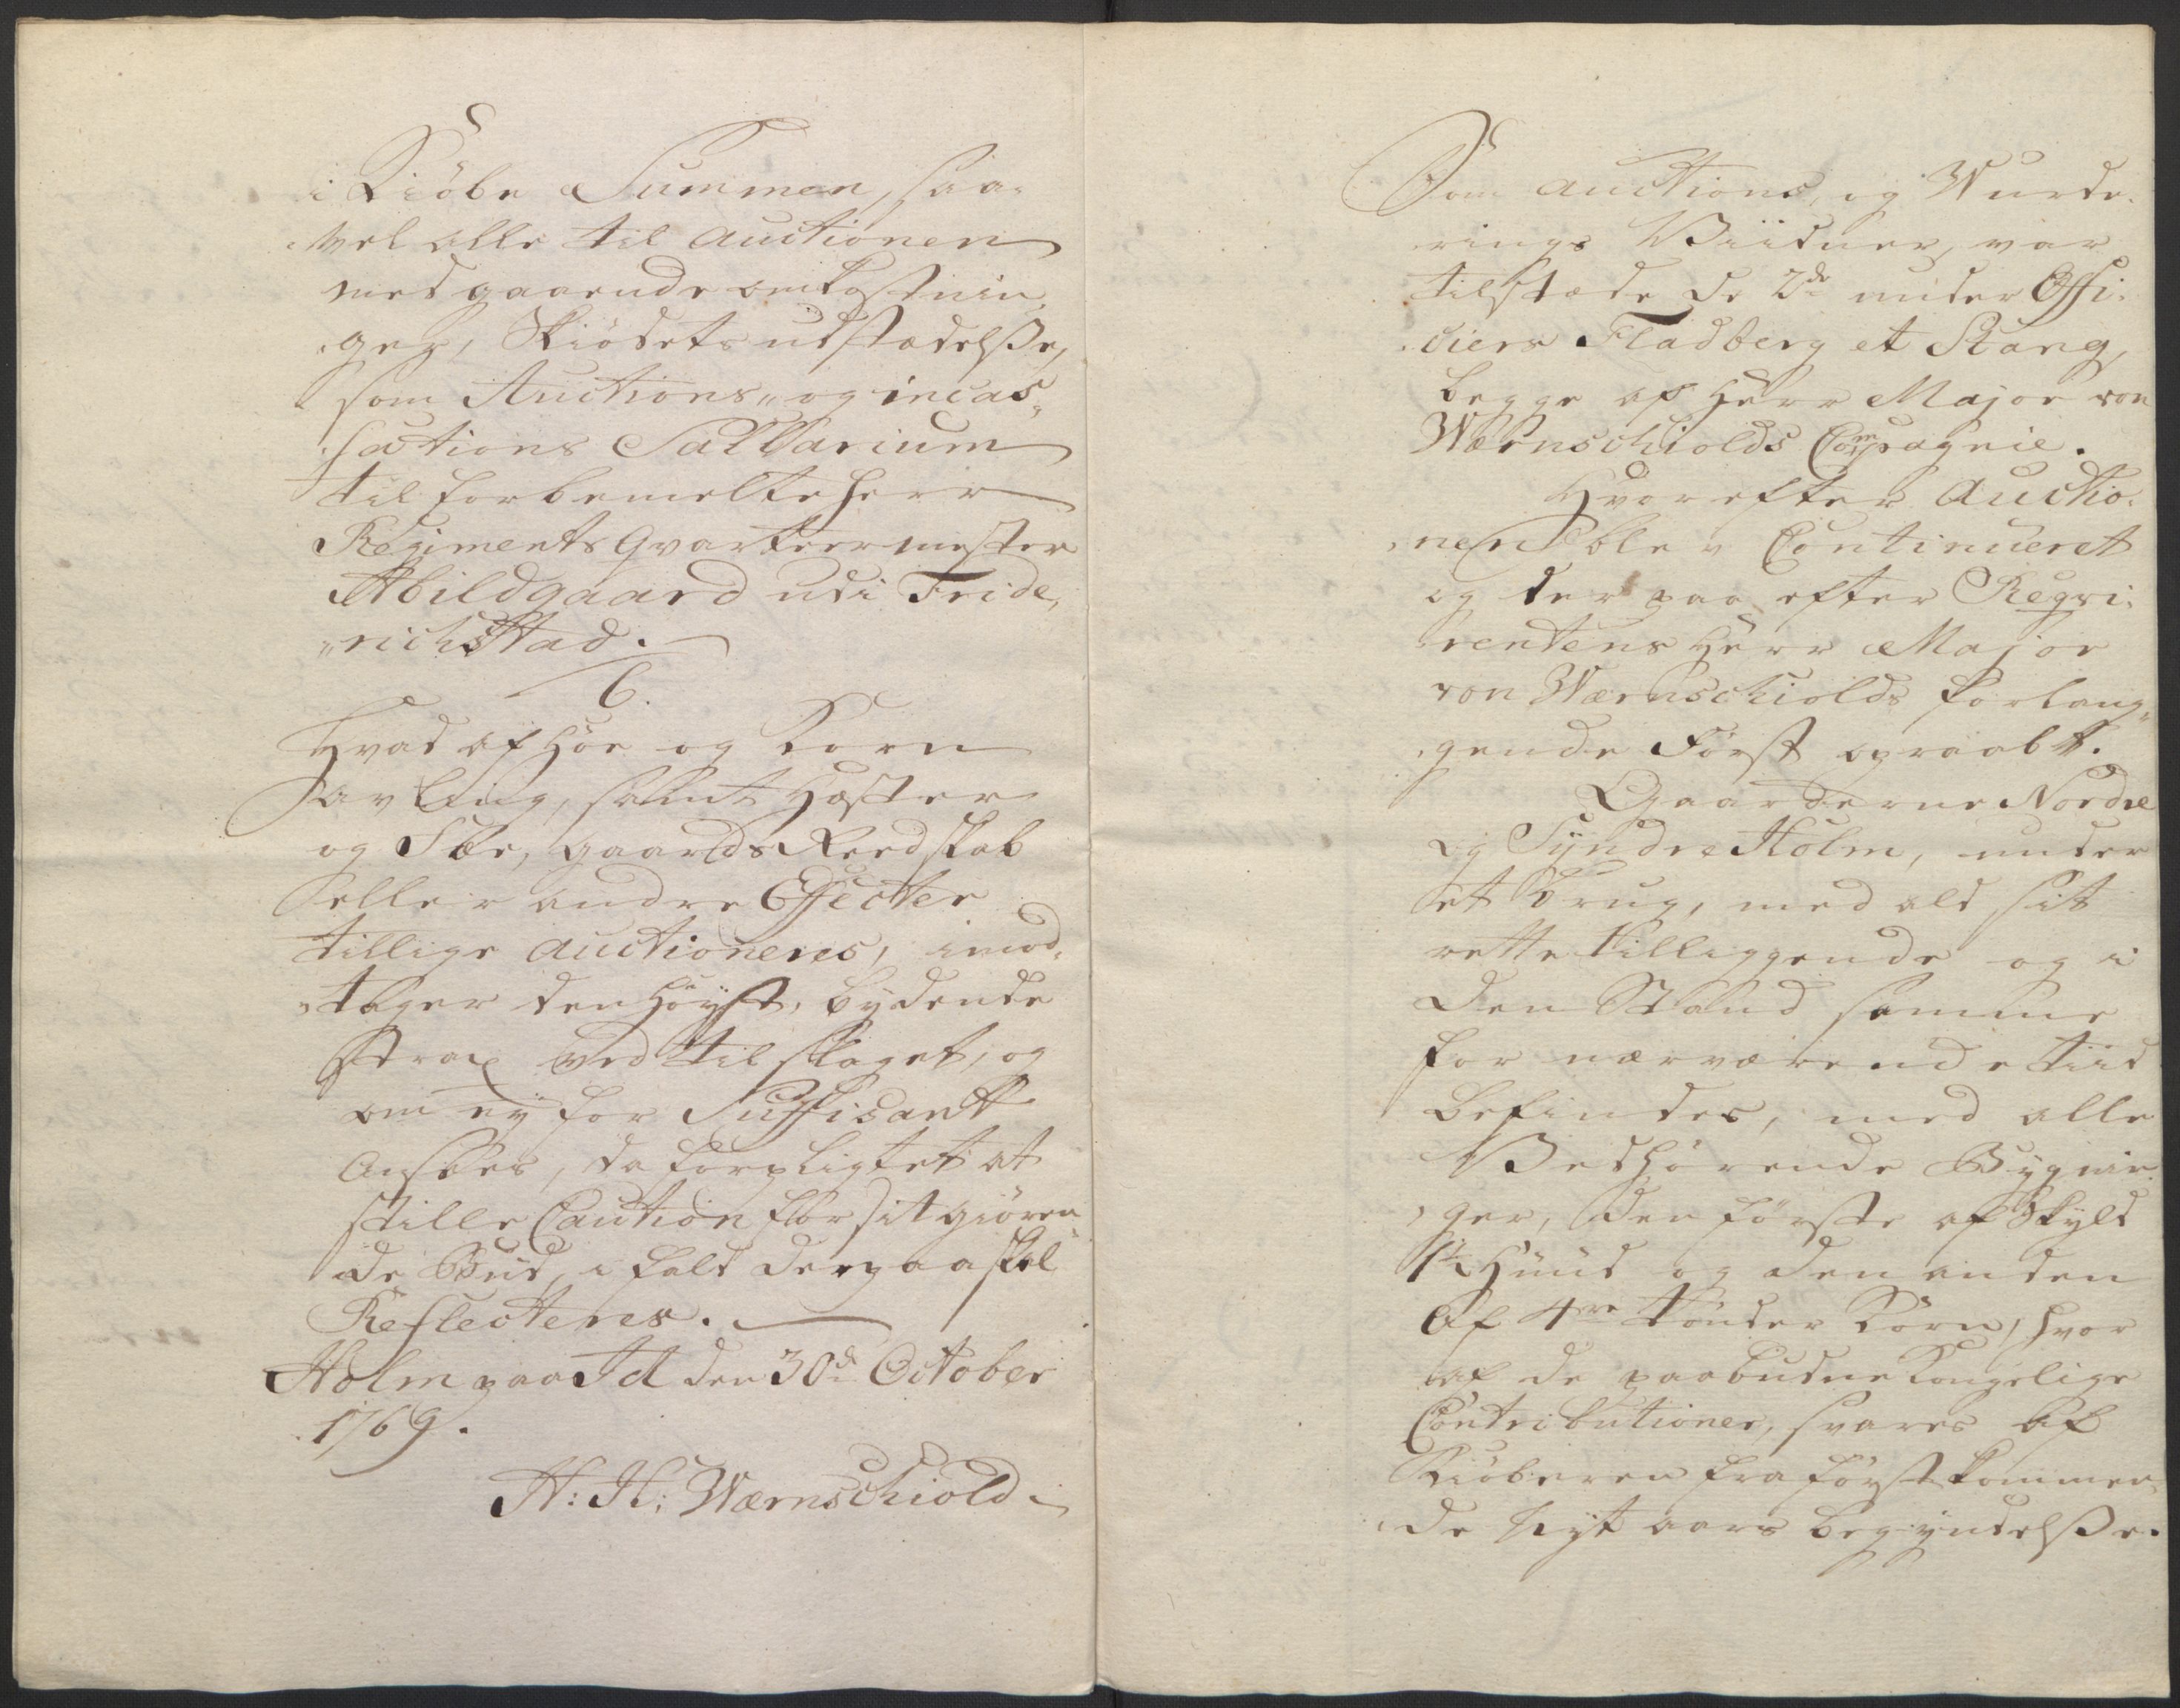 i Kiöbe Summen, saa-
vel alle til Auctionen
medgaaende omkostnin-
ger, Skiödets udstædelsse,
som Auctions- og incas-
sations Sallarium
til forbemelte Herr
Regiments Qvarteermester
Abildgaard udi Fride-
richstad.
6.
Hvad af Höe og Korn
Avling, samt Hæster
og Fæe, gaards Reedskab
eller andre Effecter
tillige auctioneres, imod-
tager den Höyst bydende
strax ved tilslaget, og
om ey for Suffisant
Ansees, da forpligtet at
stille Caution for sit giören-
de Bud, i fald derpaa skal
Reflecteres.
Holm paa Id den 30de October
1769.
H: H: Wærnschiold
Som Auctions, og Wurde-
rings Viidner, var
tilstæde de 2de under Offi-
ciers Fladberg et Stang,
begge af Herr Major von
Wærnschiolds Compagnie.
Hvorefter Auctio-
nen blev Continueret
og derpaa efter Reqvi-
rentens Herr Major
von Wærnschiolds forlan-
gende Först opraabt.
Gaarderne Nordre
og Syndre Holm, under
et brug, med ald sit
rette tilliggende og i
den Stand samme
for nærværende tiid
befindes, med alle
Vedhörende Bygnin-
ger, den förste af Skyld
1½ Huud og den anden
af 4re tönder Korn, hvor
af de paabudne Kongelige
Contributioner, svares af
Kiöberen fra förstkommen-
de Nyt aars begyndelsse.